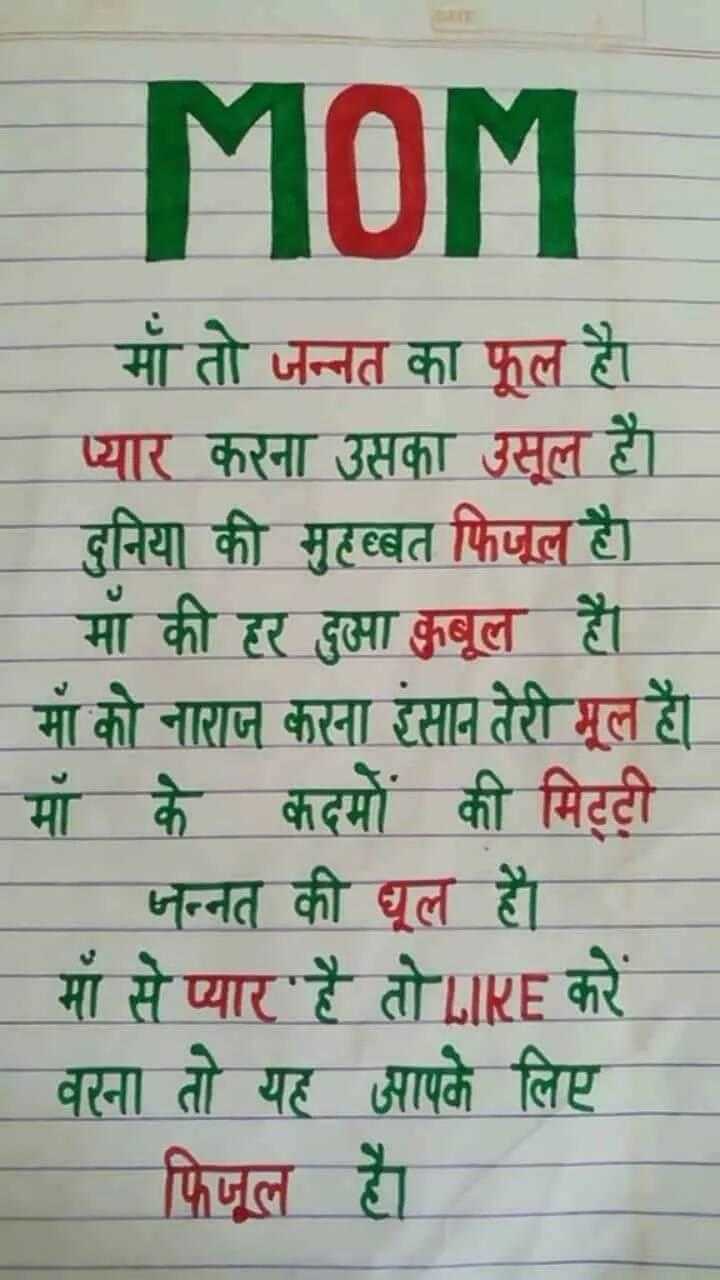 MOM
माँ तो जन्नत का फूल है।
प्यार करना उसका उसूल है।
दुनिया की मुहब्बत फिजूल है।
माँ की हर दुआ कुबूल है।
माँ को नाराज करना इंसान तेरी भूल है।
माँ के कदमों की मिट्टी
जन्नत की धूल है।
माँ से प्यार है तो LIKE करें
वरना तो यह आपके लिए
फिजूल है।